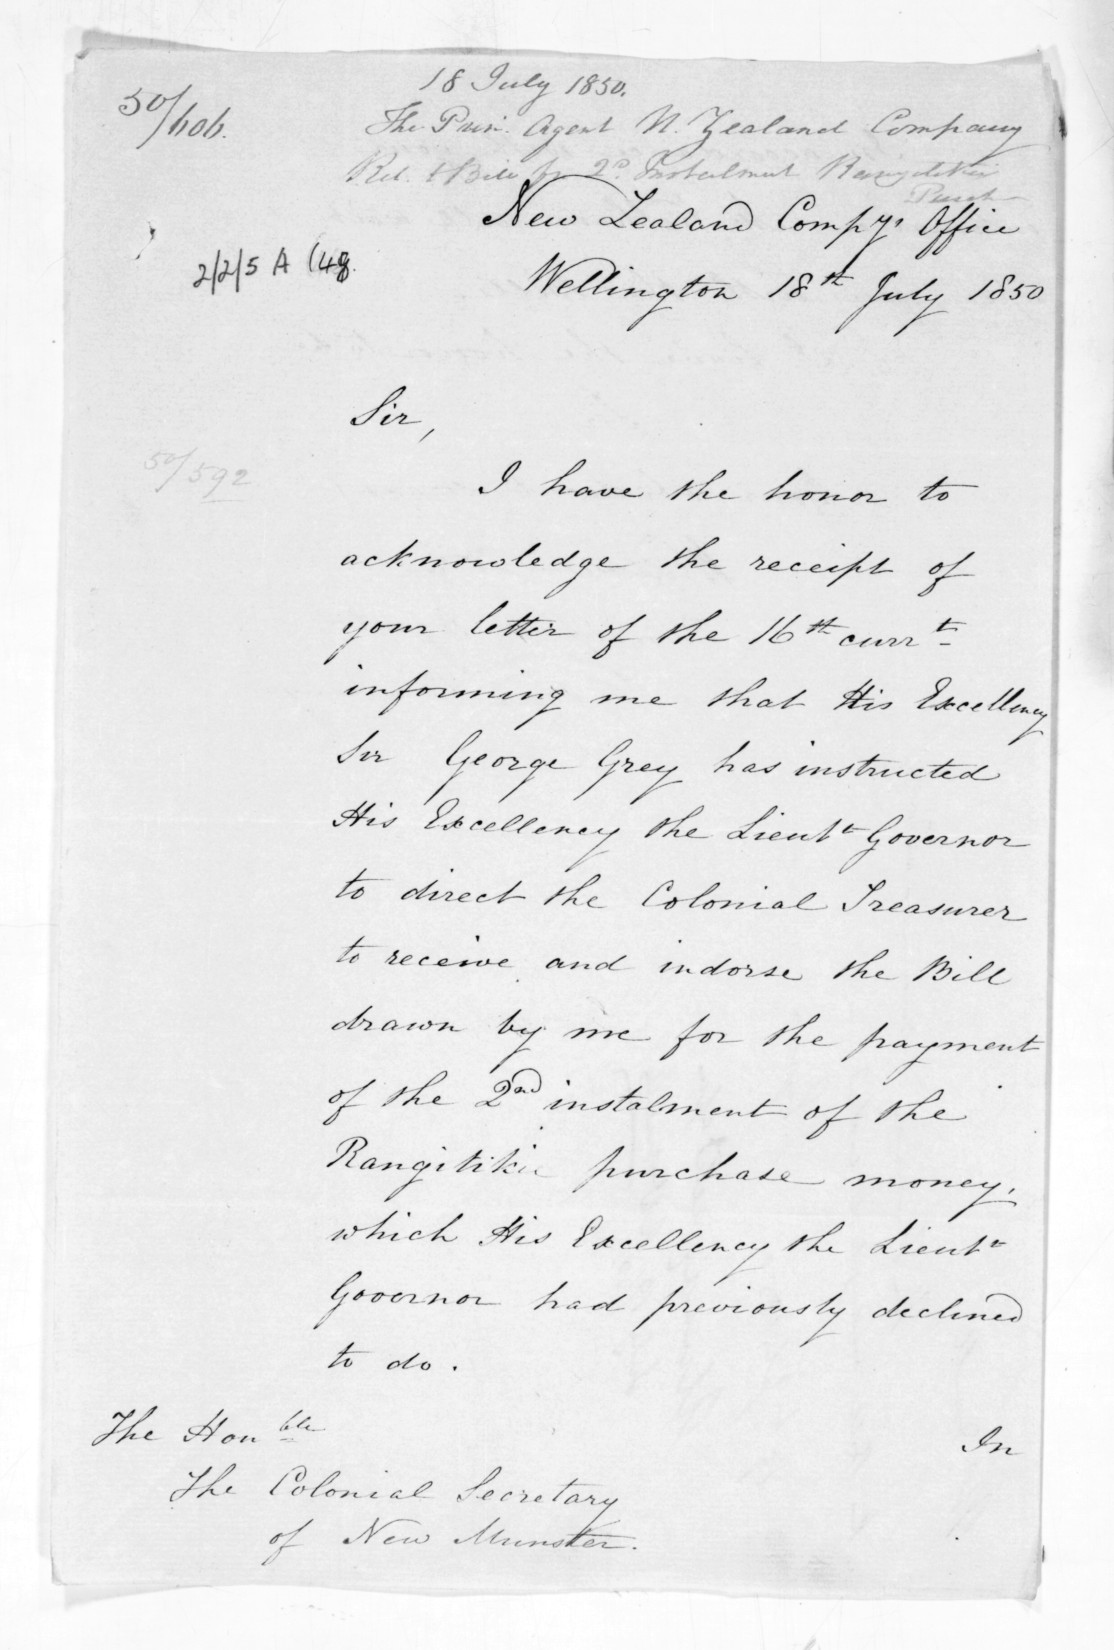 18 July 1850.
50/606.
The Prin. Agent N. Zealand Company
Rel. to Bill for 2d. Instalment Rangitikei
Purch
New Zealand Compys Office
2/2/5 A (48.
Wellington 18th July 1850
Sir,
50/592
I have the honor to
acknowledge the receipt of
your letter of the 16th currt
informing me that His Excellency
Sir George Grey has instructed
His Excellency the Lieutt Governor
to direct the Colonial Treasurer
to receive and indorse the Bill
drawn by me for the payment
of the 2nd instalment of the
Rangitikie purchase money,
which His Excellency the Lieutt
Governor had previously declined
to do.
The Honble
In
The Colonial Secretary
of New Munster.